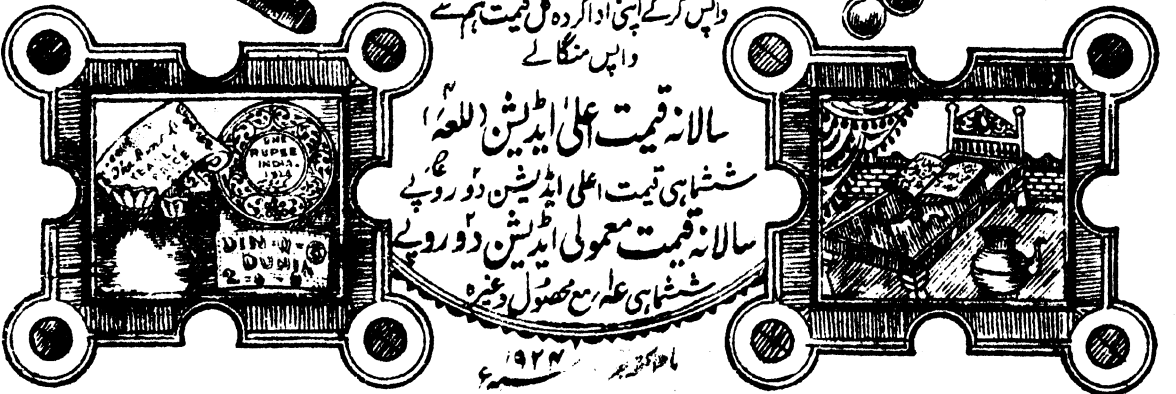 واپس کرکے اپنی ادا کردہ کل قیمت ہم سے
واپس منگالے
سالانہ قیمت اعلیٰ ایڈیشن (للعہ)
ششماہی قیمت اعلی ایڈیشن دو روپے
سالانہ قیمت معمولی ایڈیشن دو روپے
ششماہی عہ مع محصول وغیرہ
ماہ اکتوبر
سنہ ۱۹۲۴ء
YEARLY
PRICE
ONE
RUPEE
INDIA
DIN-O-
DUNIA